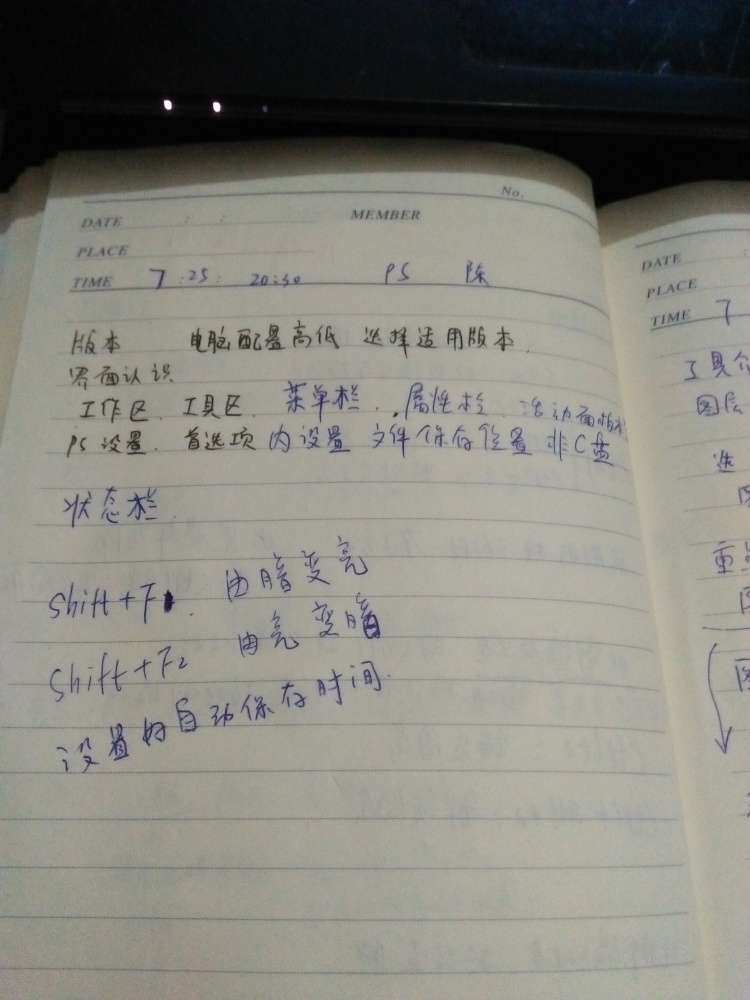 No.
DATE : : MEMBER
PLACE
TIME 7:25: 20:30 PS 陈
版本 电脑配置高低 选择适用版本.
界面认识
工作区. 工具区. 菜单栏. 属性栏. 活动面板
PS设置. 首选项内设置 文件保存位置 非C盘
状态栏.
Shift+F1. 由暗变亮
Shift+F2 由亮变暗
设置好自动保存时间.
DATE :
PLACE
TIME 7
工具介
图层
选
重